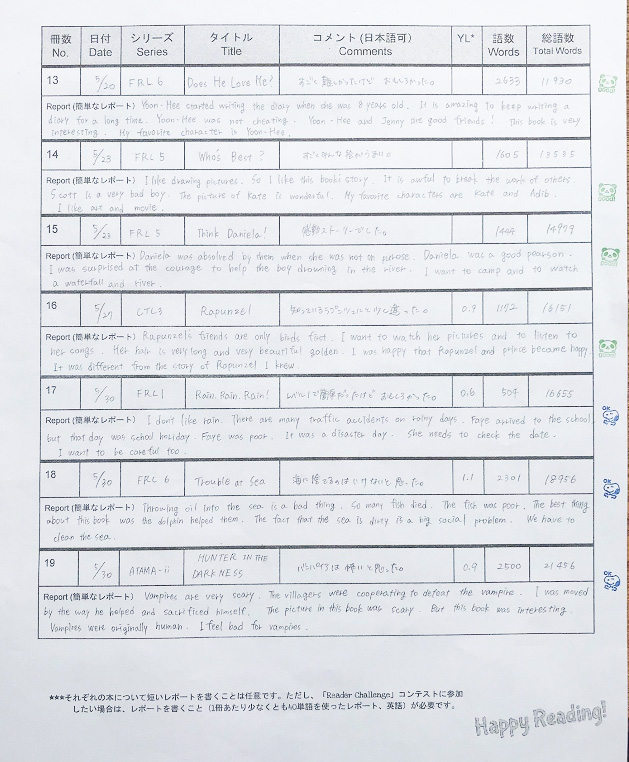 冊数 日付 シリーズ タイトル コメント (日本語可) YL* 語数 総語数
No. Date Series Title Comments Words Total Words
13 5/20 FRL 6 Does He Love Me? すごく難しかったけど おもしろかった。 2633 11930
Report (簡単なレポート) Yoon-Hee started writing the diary when she was 8 years old. It is amazing to keep writing a
diary for a long time. Yoon-Hee was not cheating. Yoon-Hee and Jenny are good friends! This book is very
interesting. My favorite character is Yoon-Hee.
14 5/23 FRL 5 Who's Best? 1605 13535
Report (簡単なレポート) I like drawing pictures. So I like this books story. It is awful to break the work of others.
Scott is a very bad boy. The picture of Kate is wonderful. My favorite characters are Kate and Adib.
I like art and movie.
15 5/23 FRL 5 Think Daniela! 感動ストーリーでした。 1444 14979
Report (簡単なレポート) Daniela was absolved by them when she was not on purpose. Daniela was a good pearson.
I was surprised at the courage to help the boy drowning in the river. I want to camp and to watch
a waterfall and river.
16 5/27 CTL3 Rapunzel 知っているラプンツェルと少し違った。 0.9 1172 16151
Report (簡単なレポート) Rapunzel's friends are only birds first. I want to watch her pictures and to listen to
her songs. Her hair is very long and very beautiful golden. I was happy that Rapunzel and prince became happy.
It was different from the story of Rapunzel I knew.
17 5/30 FRL1 Rain. Rain. Rain! レベル1で簡単だったけど おもしろかった。 0.6 504 16655
Report (簡単なレポート) I don't like rain. There are many traffic accidents on rainy days. Faye arrived to the school,
but that day was school holiday. Faye was poor. It was a disaster day. She needs to check the date.
I want to be careful too.
18 5/30 FRL 6 Trouble at Sea 海に捨てるのはいけないと思った。 1.1 2301 18956
Report (簡単なレポート) Throwing oil into the sea is a bad thing. So many fish died. The fish was poor. The best thing
about this book was the dolphin helped them. The fact that the sea is dirty is a big social problem. We have to
clean the sea.
19 5/30 ATAMA-ii HUNTER IN THE
DARKNESS バンパイアは怖いと思った。 0.9 2500 21456
Report (簡単なレポート) Vampires are very scary. The villagers were cooperating to defeat the vampire. I was moved
by the way he helped and sacrificed himself. The picture in this book was scary. But this book was interesting.
Vampires were originally human. I feel bad for vampires.
***それぞれの本について短いレポートを書くことは任意です。ただし、「Reader Challenge」コンテストに参加
したい場合は、レポートを書くこと（1冊あたり少なくとも40単語を使ったレポート、英語）が必要です。
Happy Reading!